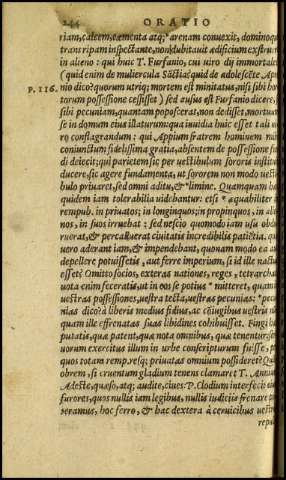 244 ORATIO
riam, calcem, cæmenta atq; arenam conuexit, dominoq;
trans ripam inspectante, non dubitauit ædificium exstrue
in alieno: qui huic T. Furfanio, cui uiro dij immortales
(quid enim de muliercula Scātia? quid de adolescēte Apro
P. 116. nio dicā? quorum utriq; mortem est minitatus, nisi sibi hor
torum possessione cessissent) sed ausus est Furfanio dicere,
sibi pecuniam, quantam poposcerat, non dedisset, mortuum
se in domum eius illaturum: qua inuidia huic esset tali ui
ro conflagrandum: qui Appium fratrem hominem mihi
coniunctum fidelissima gratia, absentem de possessione fun
di deiecit; qui parietem sic per uestibulum sororis instituit
ducere, sic agere fundamenta, ut sororem non modo uesti
bulo priuaret, sed omni aditu, & limine. Quamquam hæc
quidem iam tolerabilia uidebantur: etsi * æquabiliter in
rempub. in priuatos; in longinquos; in propinquos, in alie
nos, in suos irruebat: sed nescio quomodo iam usu obdu
ruerat, & percalluerat ciuitatis incredibilis patiētia. Quæ
uero aderant iam, & impendebant, quonam modo ea aut
depellere potuissetis, aut ferre imperium, si id ille nactus
esset; Omitto socios, exteras nationes, reges, tetrarchas
uota enim feceratis, ut in eos se potius * mitteret, quam in
uestras possessiones, uestra tecta, uestras pecunias: * pecu
nias dico? a liberis medius fidius, ac cōiugibus uestris nun
quam ille effrenatas suas libidines cohibuisset. Fingi hæc
putatis, quæ patent, quæ nota omnibus, quæ tenentur? ser
uorum exercitus illum in urbe conscripturum fuisse, per
quos totam remp. resq; priuatas omnium possideret? Quam
obrem, si cruentum gladium tenens clamaret T. Annius
Adeste, quæso, atq; audite, ciues: P. Clodium interfeci: eius
furores, quos nullis iam legibus, nullis iudiciis frenare po
teramus, hoc ferro, & hac dextera à ceruicibus uestris
repuli